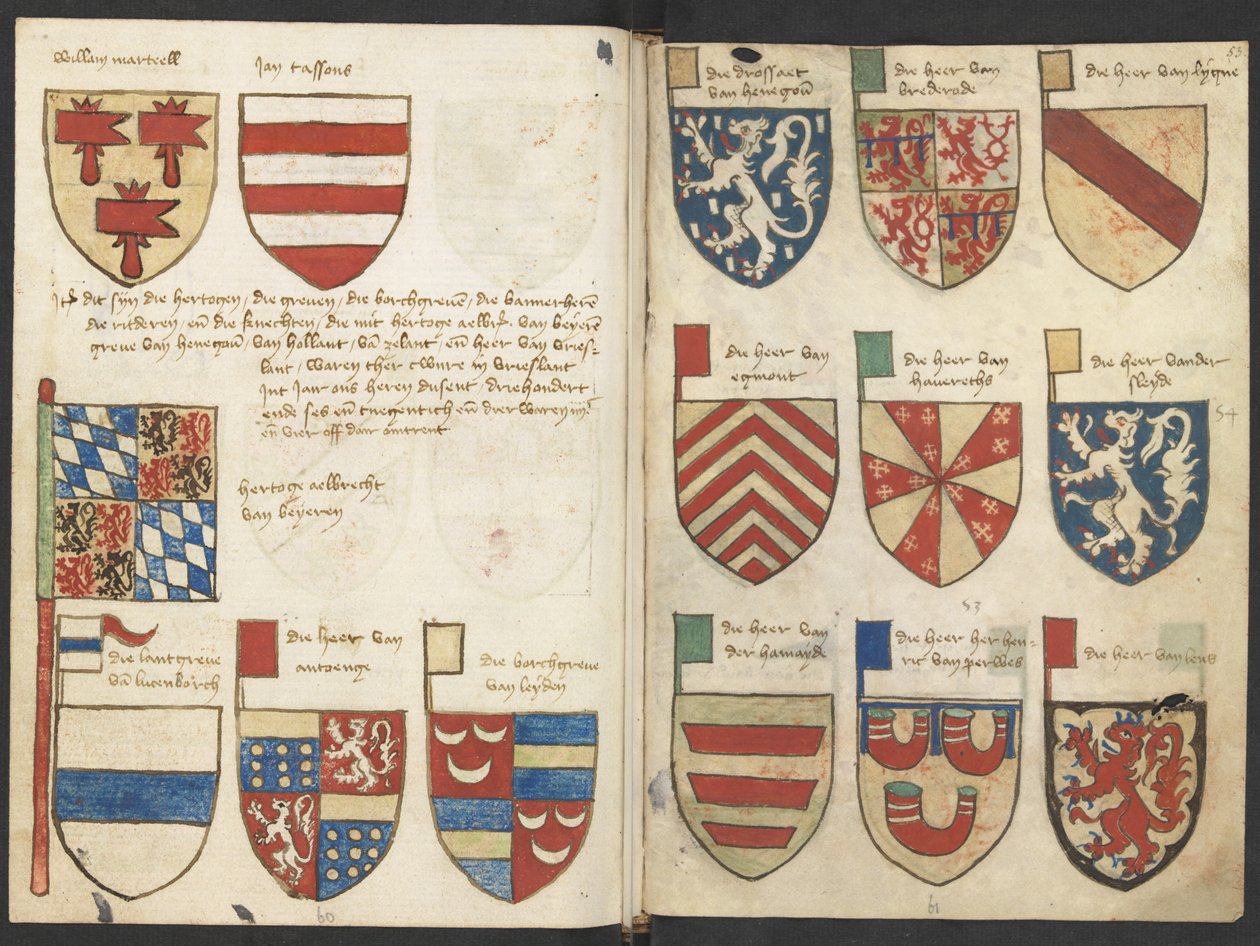 willam marteell
Jan tassons
Itē dit sijn die hertogen / die greven / die borchgreuē / die bannerherē
die ridderen / eñ die knechten / die mit hertoge aelbrͭ. van beÿerē
greue van henegoū / van hollant / vā zelant / eñ heer van vries-
lant / waren ther cuure in vrieslant
Int Jair ons heren dusent / driehondert
ende ses eñ tnegentich eñ dier waren
eñ vier off dair omtrent
hertoge aelbrecht
van beÿeren
die lantgreue
vā lucenborch
die heer van
antoenge
die borchgreue
van leÿden
60
53
die drossaet
van henegoū
die heer van
brederode
die heer van lÿgne
die heer van
egmont
die heer van
hauereths
die heer vander
sleyde
54
die heer van
der hamayde
53
die heer her hen-
ric van perwes
die heer van lens
61